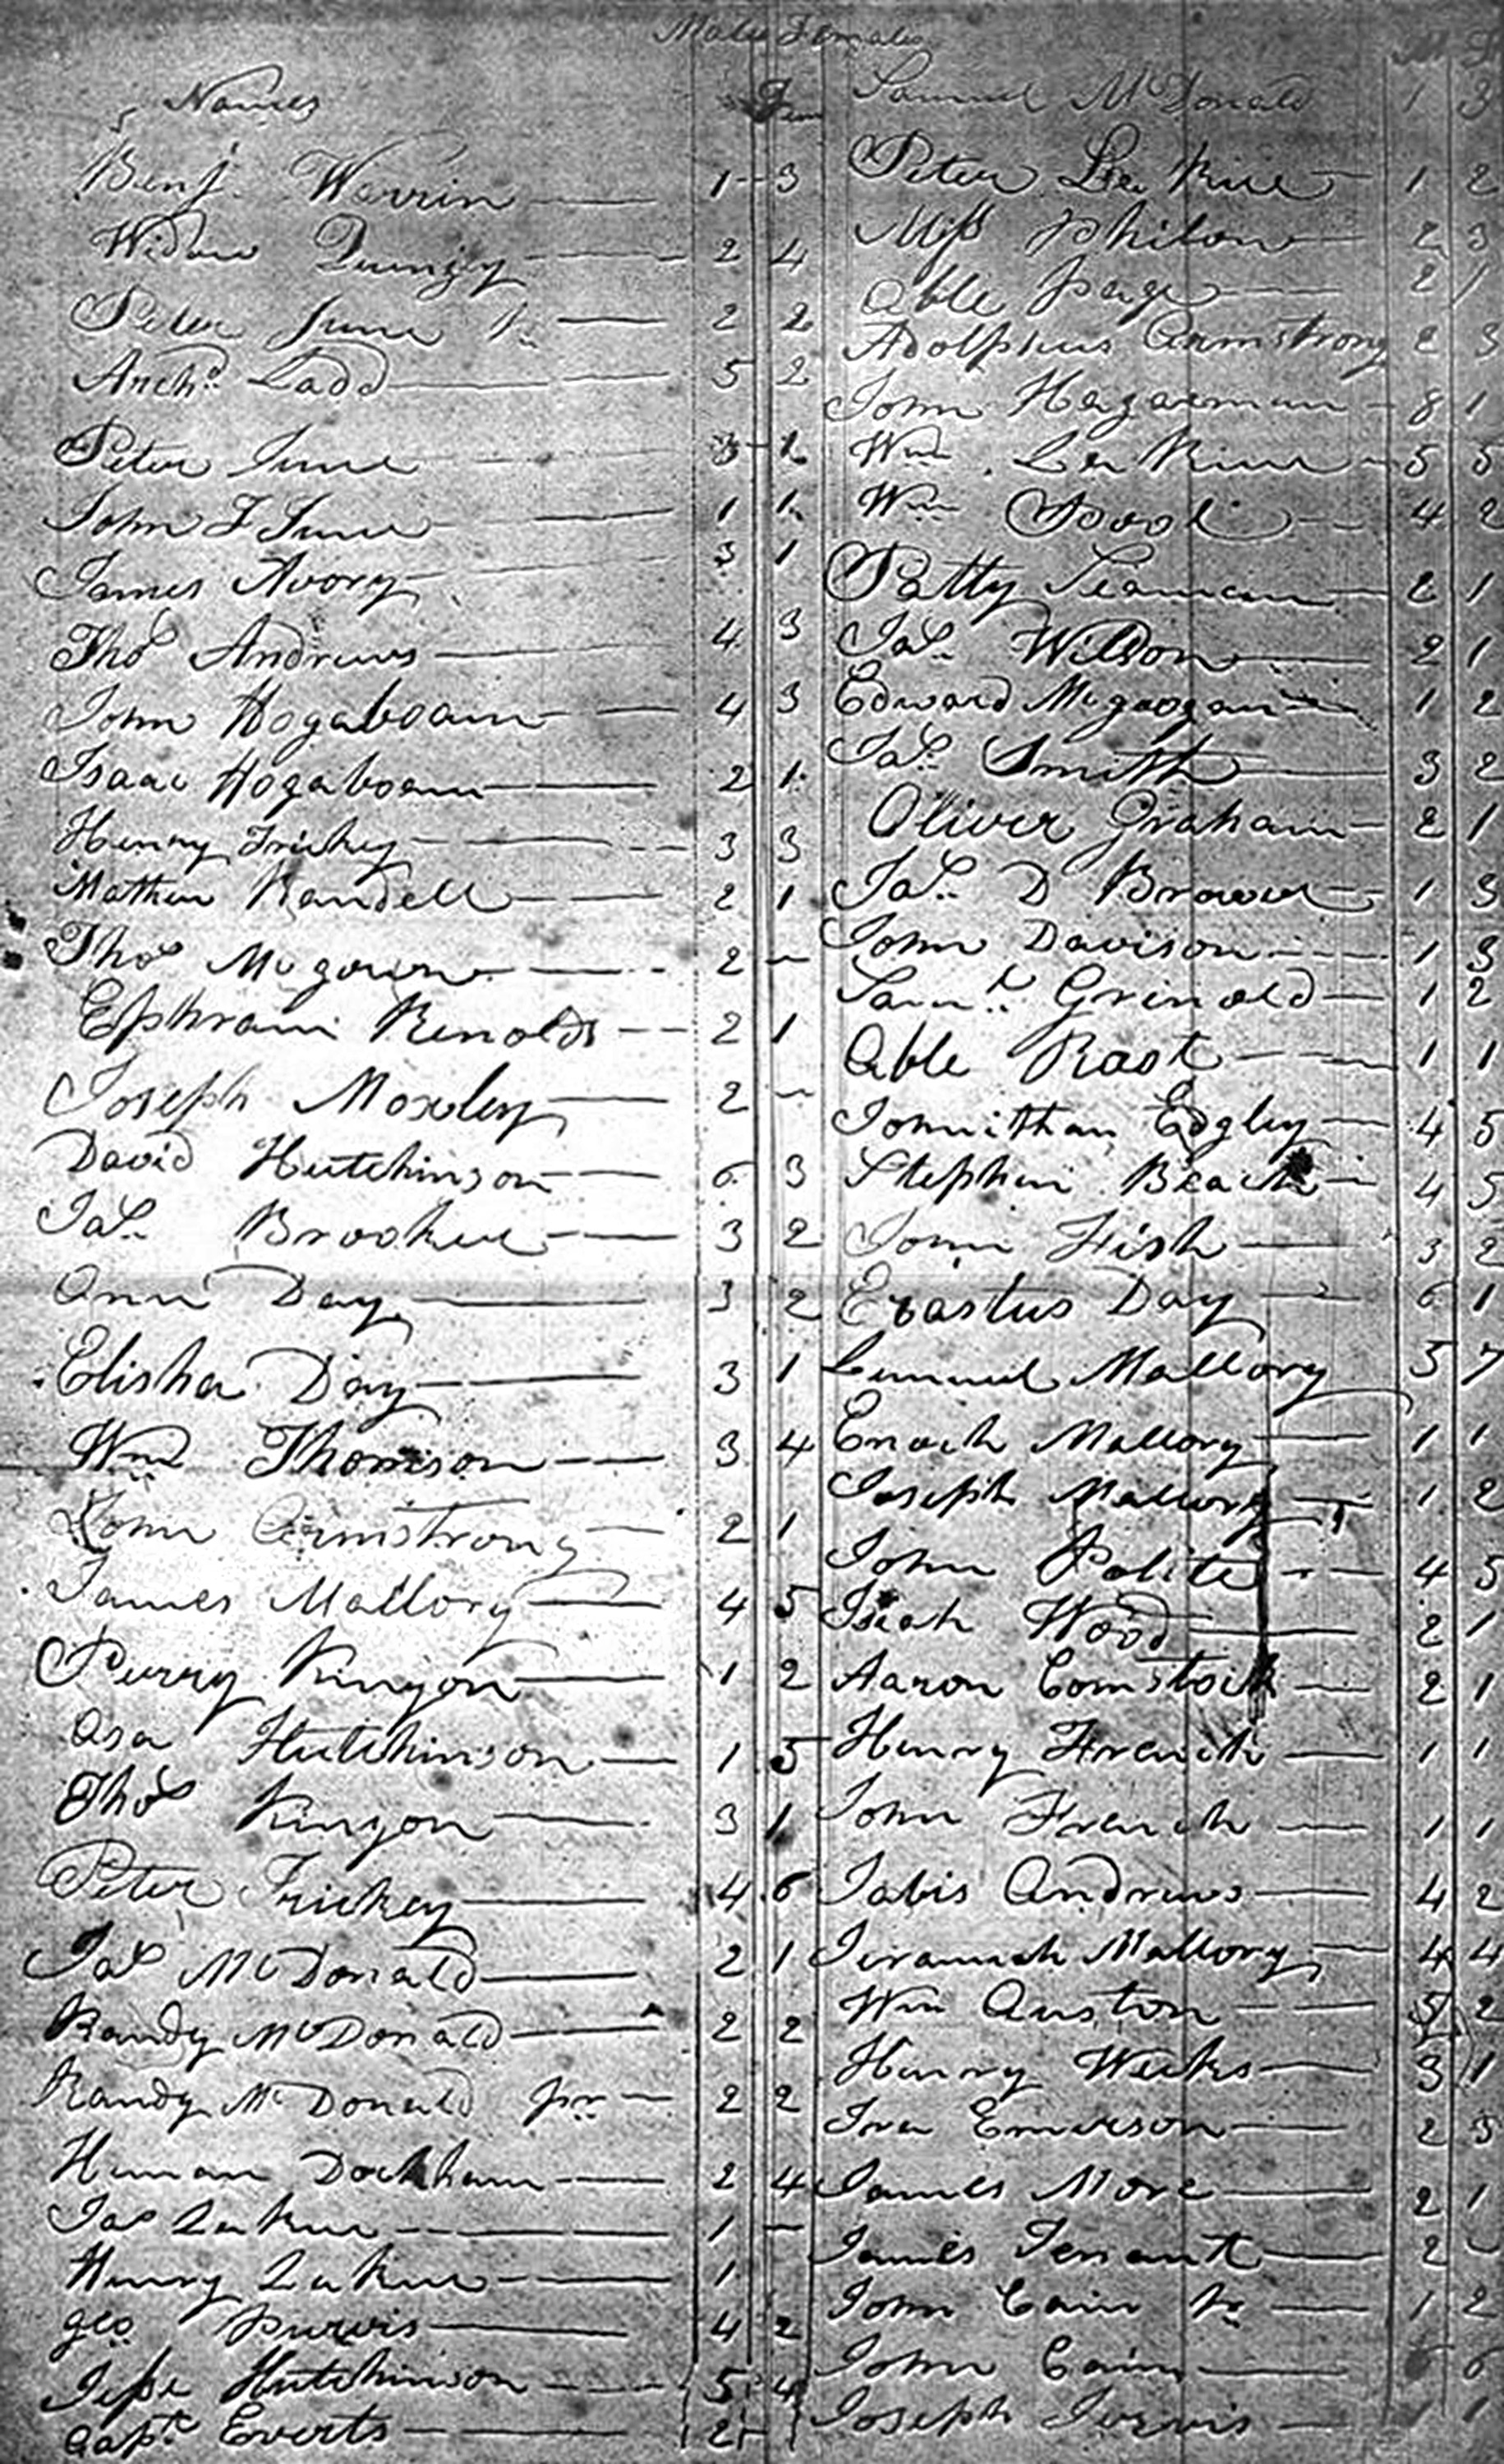 Males Females
Names Fem
Benj. Warrin 1 3
Widow Quingy 2 4
Peter June Jr 2 2
Archd. Ladd 5 2
Peter June 3 2
John F June 1 1
James Avory 3 1
Thos Andrews 4 3
John Hogaboam 4 3
Isaac Hogaboam 2 1
Henry Trickey 3 3
Mathew Randell 2 1
Thos McGown 2 –
Ephraim Renolds 2 1
Joseph Moxley 2 –
David Hutchinson 6 3
Jas. Brooker 3 2
Ann Day 3 2
Elisha Day 3 1
Wm Thomson 3 4
John Armstrong 2 1
James Mallory 4 5
Perry Kinyon 1 2
Asa Hutchinson 1 5
Thos Kinyon 3 1
Peter Trickey 4 6
Jas McDonald 2 1
Randy McDonald 2 2
Randy McDonald Jnr 2 2
Heman Dockham 2 4
Jas 1 –
Henry 1
Geo Purvis 4 2
Jesse Hutchinson 5 4
Capt. Everts 2
M F
Samuel McDonald 1 3
Peter Lee 1 2
2 3
Able Page 2 1
Adolphus Armstrong 2 3
John Hagarman 8 1
Wm. 5 5
Wm Pool 4 2
Patty Seaman 2 1
Jas. Wilson 2 1
Edward McGoogan 1 2
Jas. Smith 3 2
Oliver Graham 2 1
Jas. D Brown 1 3
John Davison 1 3
Saml. Grinold 1 2
Able Rast 1 1
Johnithan Edgley 4 5
Stephen Beach 4 5
John Fish 3 2
Erastus Day 6 1
Lemuel Mallory 5 7
Enoch Mallory 1 1
Joseph Mallory 1 2
John Polite 4 5
Isiah Wood 2 1
Aaron Comstock 2 1
Henry French 1 1
John French 1 1
Jabis Andrews 4 2
Jeramiah Mallory 4 4
Wm Auston 5 2
Henry Weeks 3 1
Ira Emerson 2 3
James More 2 1
James Tenant 2 –
John Cain Jr 1 2
John Cain 6 6
Joseph Jervis 1 1